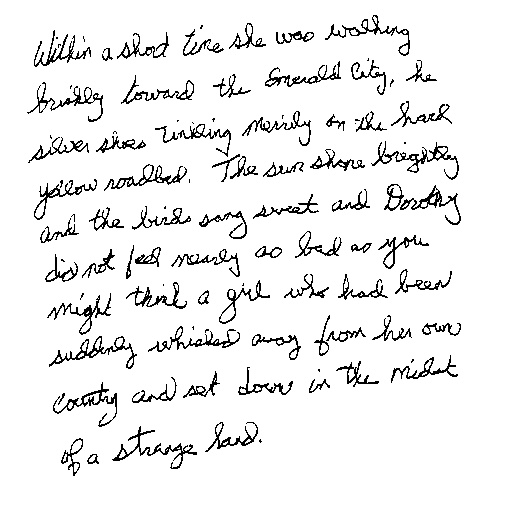 Within a short time she was walking
briskly toward the Emerald City, he
silver shoes tinkling merrily on the hard
yellow roadbed. The sun shone brightly
and the birds sang sweet and Dorothy
did not feel nearly so bad as you
might think a girl who had been
suddenly whisked away from her own
country and set down in the midst
of a strange land.